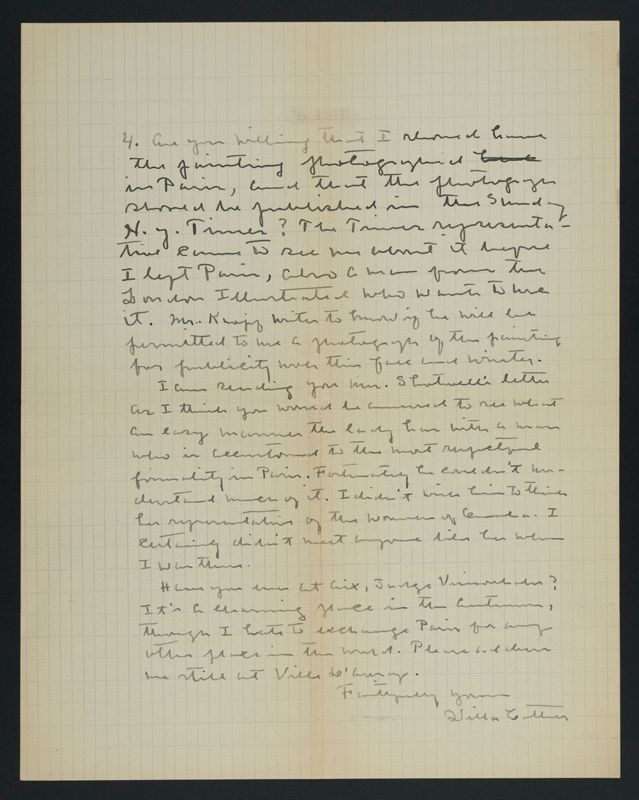 4. Are you willing that I should have
the painting photographed
in Paris, and that the photograph
should be published in the Sunday
N. Y. Times? The Times representa-
tive came to see me about it before
I left Paris, also a man from the
London Illustrated who wants to use
it. Mr. Knopf writes to know if he will be
permitted to use a photograph of the painting
for publicity work this fall and winter.
I am sending you Mrs. Shotwell's letter
as I think you would be amused to see what
an easy manner the lady has with a man
who is accustomed to the most respectful
formality in Paris. Fortunately he couldn't un-
derstand much of it. I didn't wish him to think
her representative of the women of Omaha. I
certainly didn't meet anyone like her when
I was there.
Have you been at Aix, Judge Vinsonhaler?
It's a charming place in the Autumn,
though I hate to exchange Paris for any
other place in the world. Please address
me still at Ville d'Avray.
Faithfully yours
Willa Cather